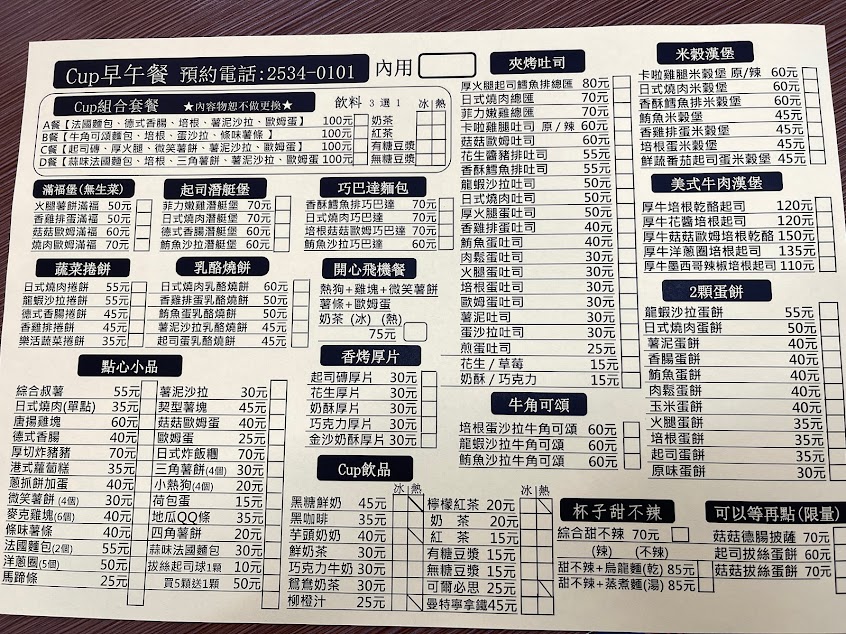 Cup早午餐 預約電話:2534-0101 內用
Cup組合套餐 ★內容物恕不做更換★ 飲料 3 選 1 冰 熱
A餐【法國麵包、德式香腸、培根、薯泥沙拉、歐姆蛋】 100元 奶茶
B餐【牛角可頌麵包、培根、蛋沙拉、條味薯條】 100元 紅茶
C餐【起司磚、厚火腿、微笑薯餅、薯泥沙拉、歐姆蛋】 100元 有糖豆漿
D餐【蒜味法國麵包、培根、三角薯餅、薯泥沙拉、歐姆蛋】 100元 無糖豆漿
滿福堡(無生菜)
火腿薯餅滿福 50元
香雞排蛋滿福 50元
菇菇歐姆滿福 60元
燒肉歐姆滿福 70元
起司潛艇堡
菲力嫩雞潛艇堡 70元
日式燒肉潛艇堡 70元
德式香腸潛艇堡 60元
鮪魚沙拉潛艇堡 60元
巧巴達麵包
香酥鱈魚排巧巴達 70元
日式燒肉巧巴達 70元
培根菇菇歐姆巧巴達 70元
鮪魚沙拉巧巴達 60元
蔬菜捲餅
日式燒肉捲餅 55元
龍蝦沙拉捲餅 55元
德式香腸捲餅 45元
香雞排捲餅 45元
樂活蔬菜捲餅 35元
乳酪燒餅
日式燒肉乳酪燒餅 60元
香雞排蛋乳酪燒餅 50元
鮪魚蛋乳酪燒餅 50元
薯泥沙拉乳酪燒餅 45元
起司蛋乳酪燒餅 45元
開心飛機餐
熱狗+雞塊+微笑薯餅
薯條+歐姆蛋
奶茶 (冰) (熱)
75元
香烤厚片
起司磚厚片 30元
花生厚片 30元
奶酥厚片 30元
巧克力厚片 30元
金沙奶酥厚片 30元
點心小品
綜合叔薯 55元
日式燒肉(單點) 35元
唐揚雞塊 60元
德式香腸 40元
厚切炸豬豬 70元
港式蘿蔔糕 35元
蔥抓餅加蛋 40元
微笑薯餅(4個) 30元
麥克雞塊(6個) 40元
條味薯條 40元
法國麵包(2個) 55元
洋蔥圈(5個) 50元
馬蹄條 25元
薯泥沙拉 30元
契型薯塊 45元
菇菇歐姆蛋 40元
歐姆蛋 25元
日式炸飯糰 70元
三角薯餅(4個) 30元
小熱狗(4個) 20元
荷包蛋 15元
地瓜QQ條 35元
四角薯餅 20元
蒜味法國麵包 30元
拔絲起司球1顆 10元
買5顆送1顆 50元
Cup飲品
冰 熱
黑糖鮮奶 45元
黑咖啡 35元
芋頭奶奶 40元
鮮奶茶 30元
巧克力牛奶 30元
鴛鴦奶茶 30元
柳橙汁 25元
冰 熱
檸檬紅茶 20元
奶 茶 20元
紅 茶 15元
有糖豆漿 15元
無糖豆漿 15元
可爾必思 25元
曼特寧拿鐵 45元
夾烤吐司
厚火腿起司鱈魚排總匯 80元
日式燒肉總匯 70元
菲力嫩雞總匯 70元
卡啦雞腿吐司 原/辣 60元
菇菇歐姆吐司 60元
花生醬豬排吐司 55元
香酥鱈魚排吐司 55元
龍蝦沙拉吐司 50元
日式燒肉吐司 50元
厚火腿蛋吐司 50元
香雞排蛋吐司 40元
鮪魚蛋吐司 40元
肉鬆蛋吐司 30元
火腿蛋吐司 30元
培根蛋吐司 30元
歐姆蛋吐司 30元
薯泥吐司 30元
蛋沙拉吐司 30元
煎蛋吐司 25元
花生/草莓 15元
奶酥/巧克力 15元
牛角可頌
培根蛋沙拉牛角可頌 60元
龍蝦沙拉牛角可頌 60元
鮪魚沙拉牛角可頌 60元
米穀漢堡
卡啦雞腿米穀堡 原/辣 60元
日式燒肉米穀堡 60元
香酥鱈魚排米穀堡 60元
鮪魚米穀堡 45元
香雞排蛋米穀堡 45元
培根蛋米穀堡 45元
鮮蔬番茄起司蛋米穀堡 45元
美式牛肉漢堡
厚牛培根乾酪起司 120元
厚牛花醬培根起司 120元
厚牛菇菇歐姆培根乾酪 150元
厚牛洋蔥圈培根起司 135元
厚牛墨西哥辣椒培根起司 110元
2顆蛋餅
龍蝦沙拉蛋餅 55元
日式燒肉蛋餅 50元
薯泥蛋餅 40元
香腸蛋餅 40元
鮪魚蛋餅 40元
肉鬆蛋餅 40元
玉米蛋餅 40元
火腿蛋餅 35元
培根蛋餅 35元
起司蛋餅 35元
原味蛋餅 30元
杯子甜不辣
綜合甜不辣 70元
(辣) (不辣)
甜不辣+烏龍麵(乾) 85元
甜不辣+蒸煮麵(湯) 85元
可以等再點(限量)
菇菇德腸披薩 70元
起司拔絲蛋餅 60元
菇菇拔絲蛋餅 70元